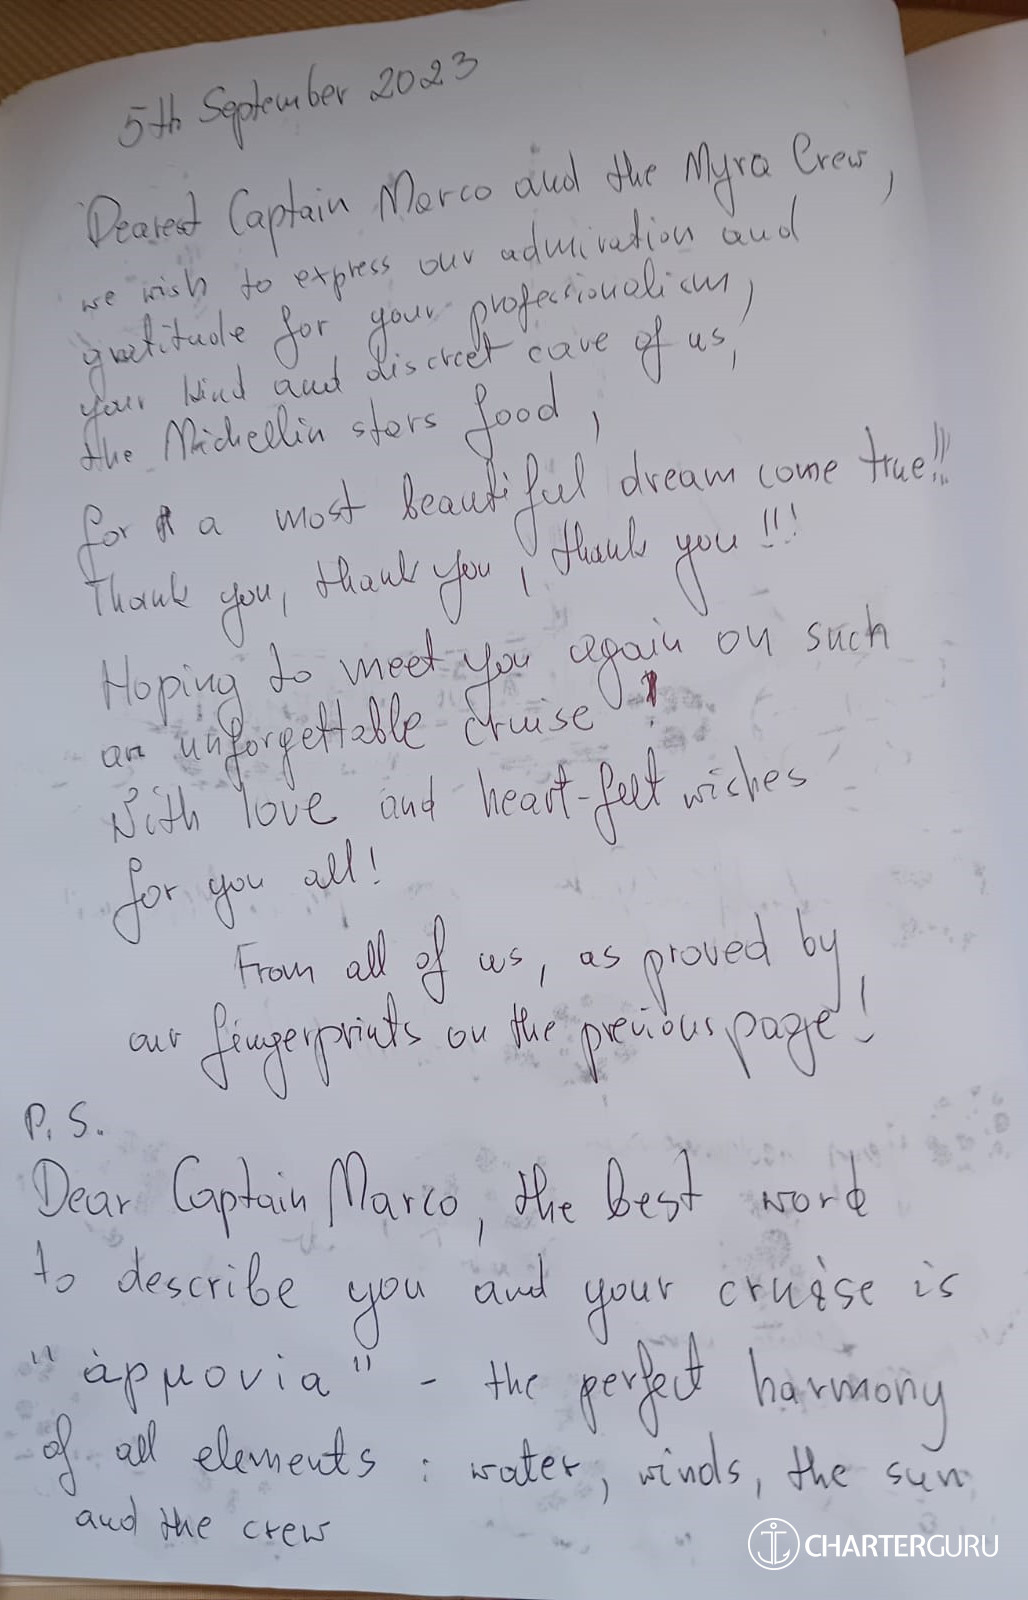 5th September 2023
Dearest Captain Marco and the Myra Crew,
we wish to express our admiration and
gratitude for your professionalism,
your kind and discreet care of us,
the Michellin stars food,
for a most beautiful dream come true!!!
Thank you, thank you, thank you!!!
Hoping to meet you again on such
an unforgettable cruise!
With love and heart-felt wishes
for you all!
From all of us, as proved by
our fingerprints on the previous page!
P.S.
Dear Captain Marco, the best word
to describe you and your cruise is
"àρμονία" - the perfect harmony
of all elements: water, winds, the sun
and the crew
CHARTERGURU